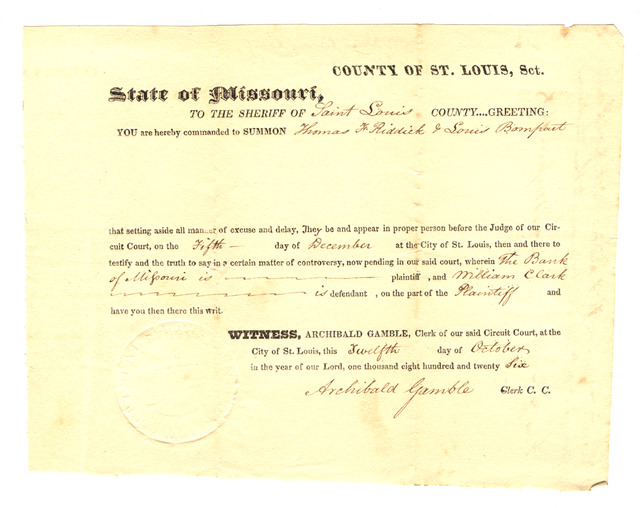 COUNTY OF ST. LOUIS, Sct.
State of Missouri,
TO THE SHERIFF OF Saint Louis COUNTY....GREETING:
YOU are hereby commanded to SUMMON Thomas F Riddick & Louis Bompart
that setting aside all manner of excuse and delay, They be and appear in proper person before the Judge of our Cir
cuit Court, on the Fifth — day of December at the City of St. Louis, then and there to
testify and the truth to say in a certain matter of controversy, now pending in our said court, wherein The Bank
of Missouri is — plaintiff , and William Clark
— is defendant , on the part of the Plaintiff and
have you then there this writ.
WITNESS, ARCHIBALD GAMBLE, Clerk of our said Circuit Court, at the
City of St. Louis, this Twelfth day of October
in the year of our Lord, one thousand eight hundred and twenty Six
Archibald Gamble Clerk C. C.